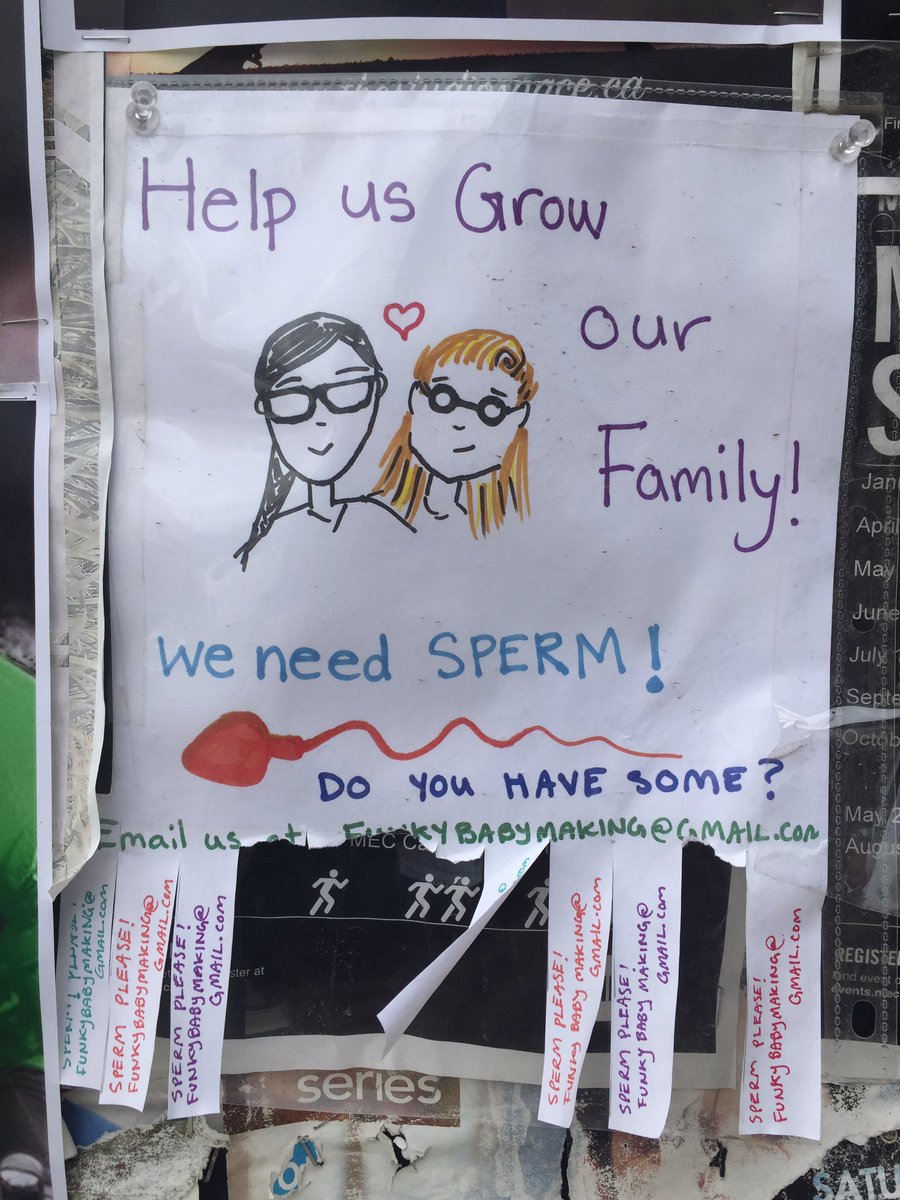 thestudiospace.ca
Help us Grow
our
Family!
We need SPERM!
DO YOU HAVE SOME?
Email us at FUNKYBABYMAKING@GMAIL.COM
MEC
SPERM PLEASE!
FUNKYBABYMAKING@
GMAIL.COM
SPERM PLEASE!
FUNKYBABYMAKING@
GMAIL.COM
SPERM PLEASE!
FUNKYBABYMAKING@
GMAIL.COM
SPERM PLEASE!
FUNKY BABY MAKING@
GMAIL.COM
SPERM PLEASE!
FUNKY BABY MAKING@
GMAIL.COM
SPERM PLEASE!
FUNKYBABYMAKING@
GMAIL.COM
series
April
May
June
July
May 2
REGISTER
events.mec